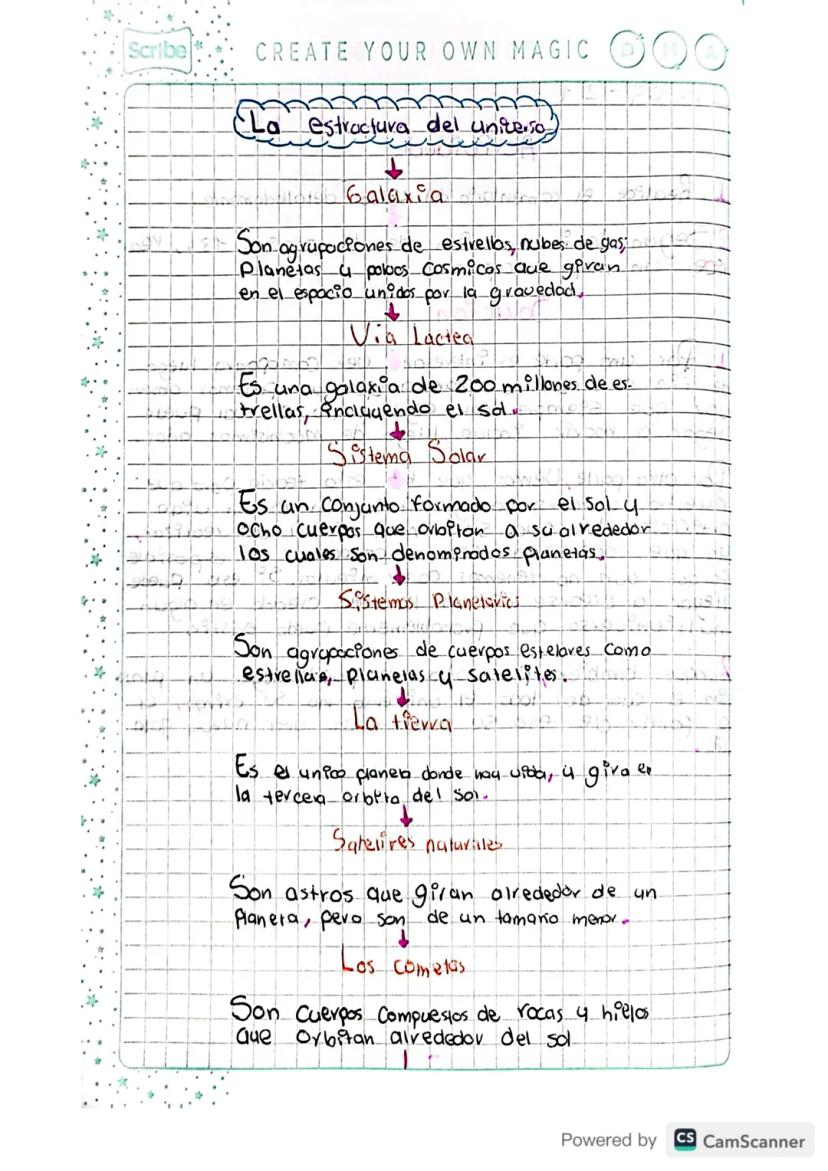 Scribe
CREATE YOUR OWN MAGIC D M A
La estructura del universo
Galaxia
Son agrupaciones de estrellas, nubes de gas;
Planetas y polvos cosmicos que giran
en el espacio unidos por la gravedad.
Via Lactea
Es una galaxia de 200 millones de es-
trellas, incluyendo el sol.
Sistema Solar
Es un conjunto formado por el sol y
ocho cuerpos que orbitan a su alrededor
los cuales son denominados planetas.
Sistemas Planetarios
Son agrupaciones de cuerpos estelares como
estrellas, planetas y satelites.
La tierra
Es el unico planeta donde hay vida, y gira en
la tercera orbita del sol.
Satelites naturales
Son astros que giran alrededor de un
Planeta, pero son de un tamaño menor.
Los cometas
Son cuerpos compuestos de rocas y hielos
que orbitan alrededor del sol
Powered by CS CamScanner